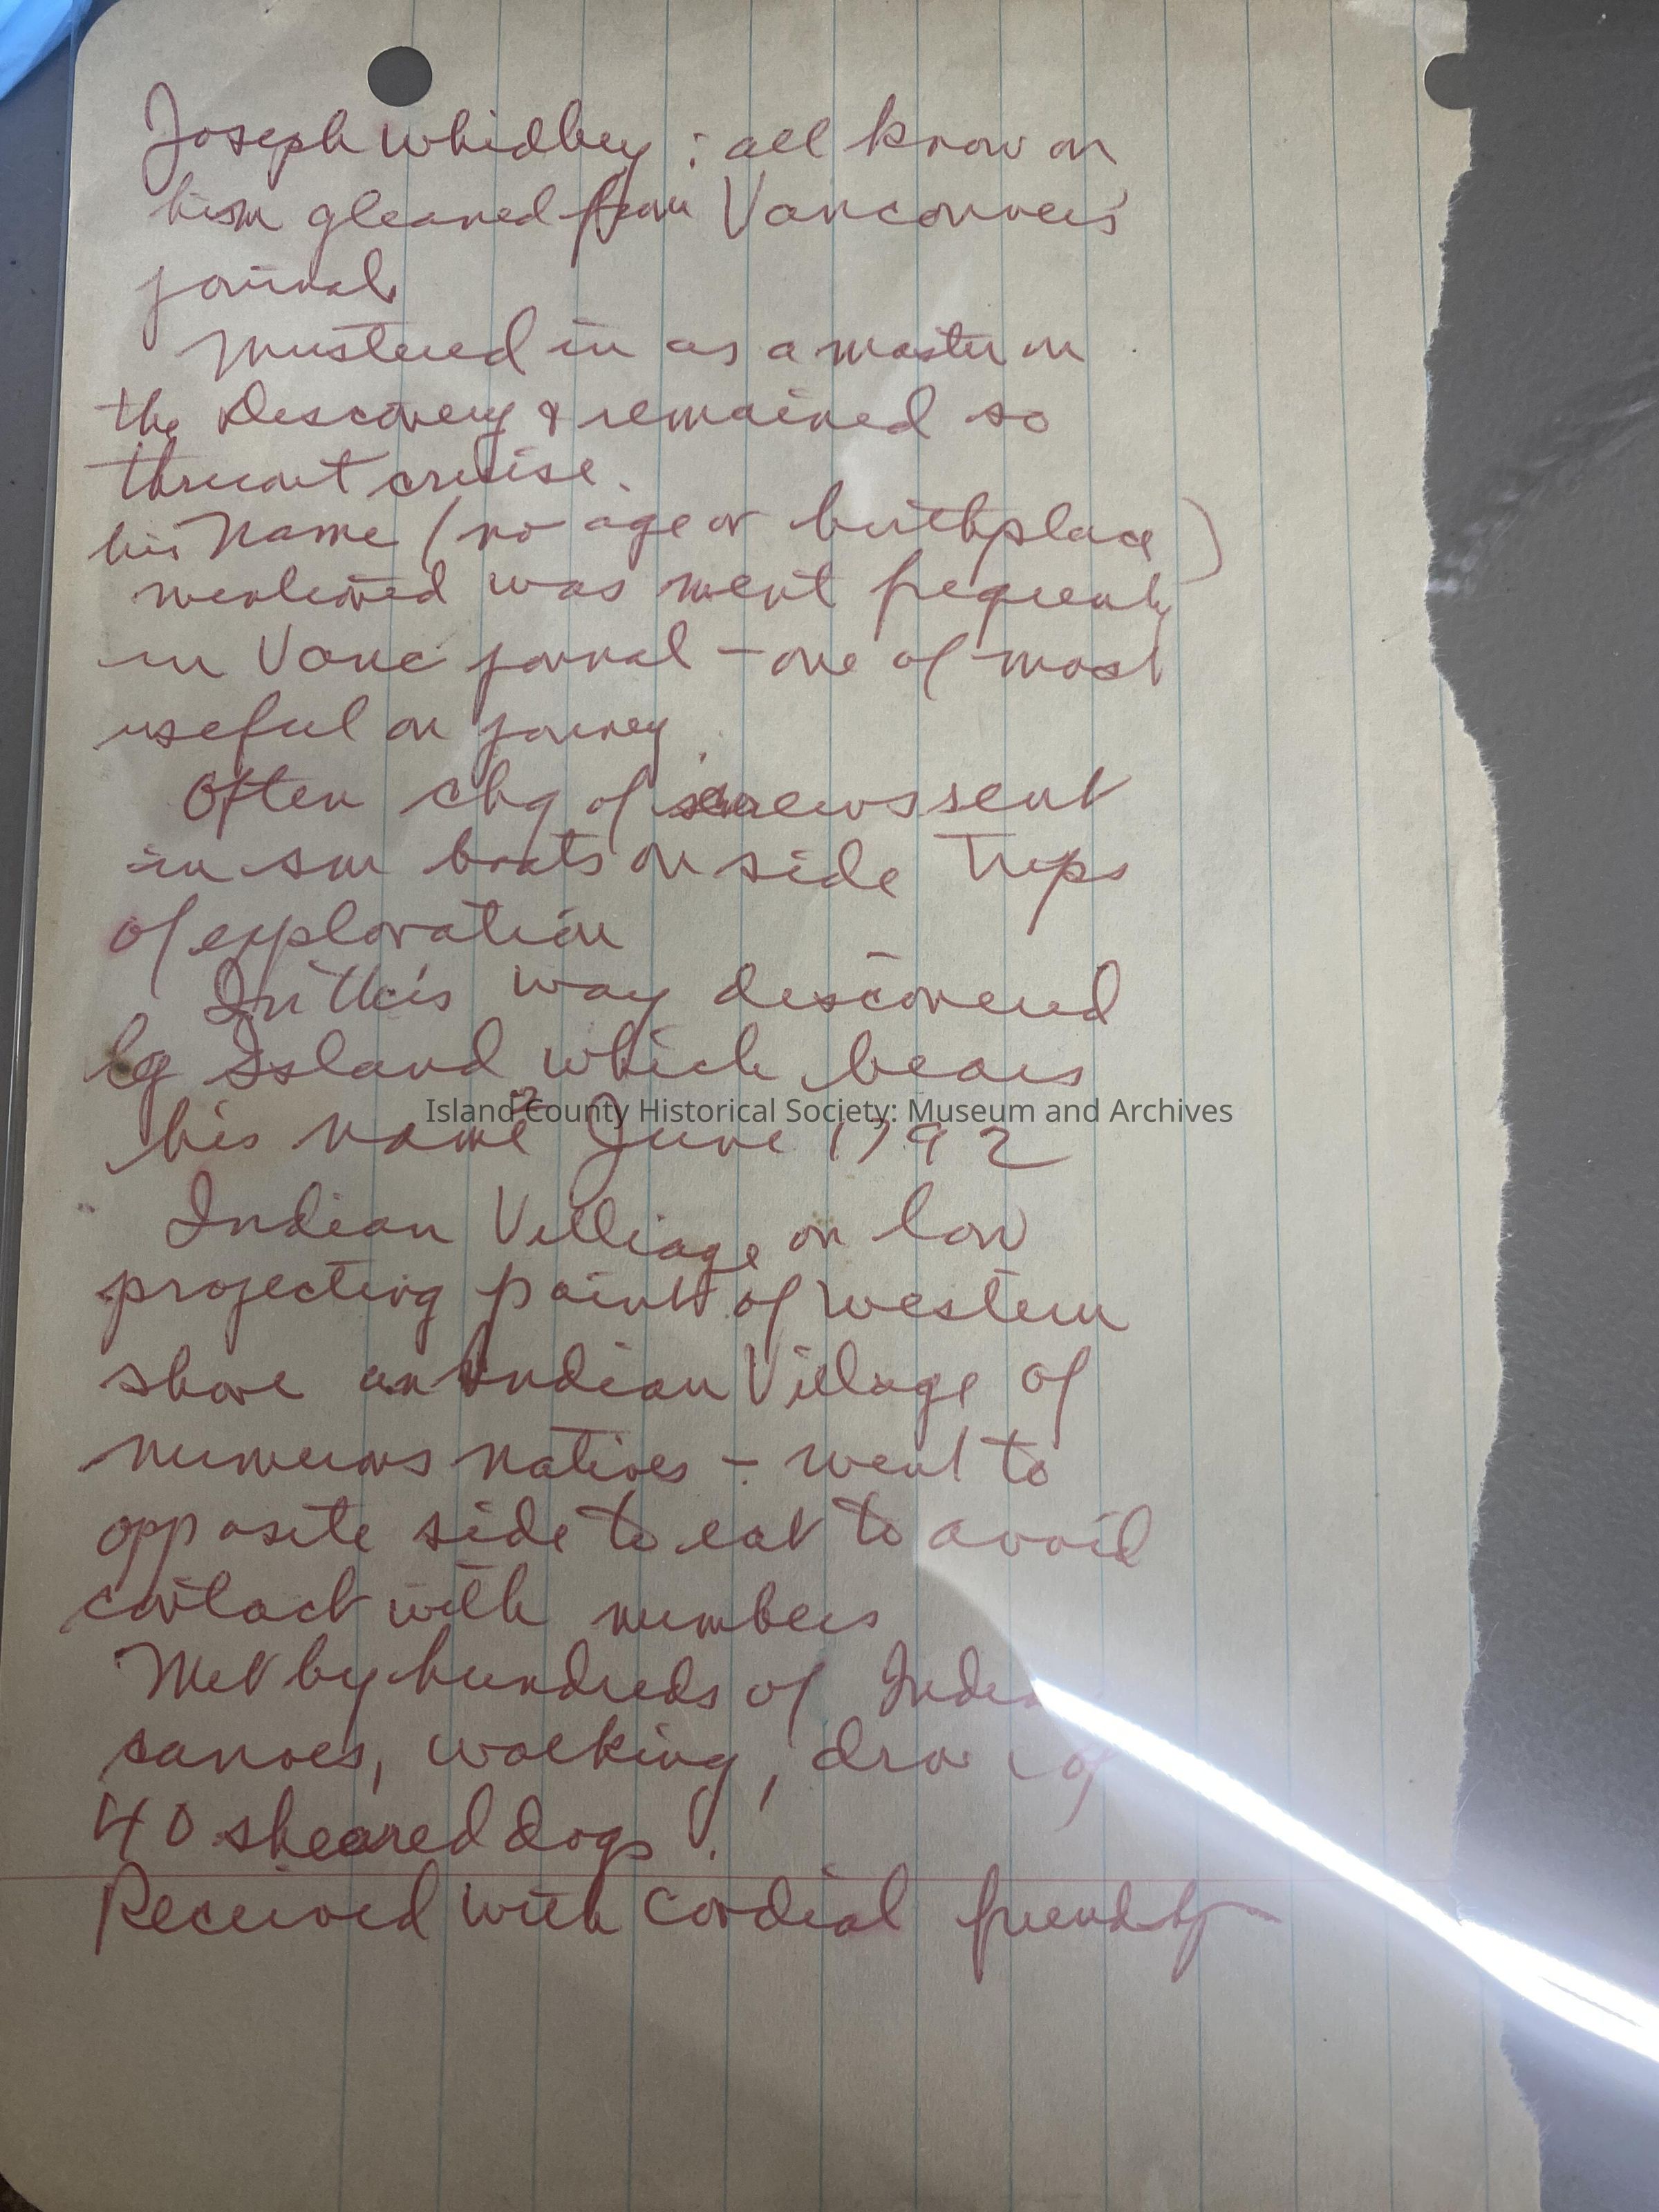 Joseph Whidbey : all know on
him gleaned from Vancouver's
journal
Mustered in as a master on
the Discovery & remained so
thruout cruise.
his Name (no age or birthplace)
mentioned was ment frequently
in Vanc journal – one of most
useful on journey.
Often chg of crews sent
in sm boats on side Trips
of exploration
In this way discovered
lg Island which bears
his name June 1792
Island County Historical Society: Museum and Archives
Indian Villiage on low
projecting point of western
shore an Indian Village of
numerous natives – went to
opposite side to eat to avoid
contact with numbers
Met by hundreds of
canoes, walking, of
40 sheared dogs.
Received with cordial